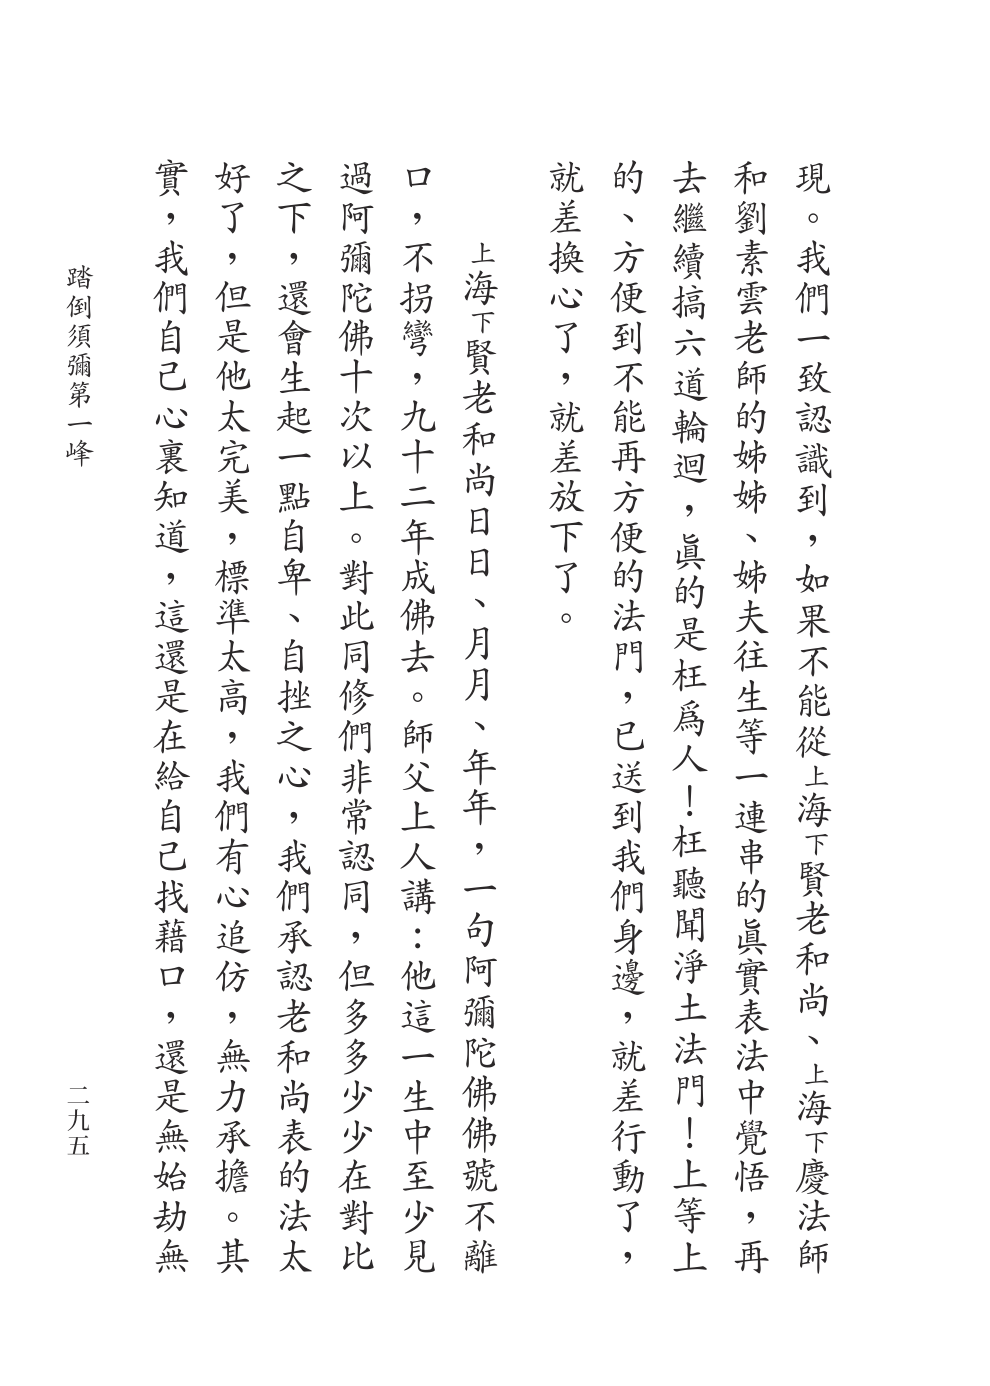 現。我們一致認識到，如果不能從上海下賢老和尚、上海下慶法師
和劉素雲老師的姊姊、姊夫往生等一連串的眞實表法中覺悟，再
去繼續搞六道輪迴，眞的是枉爲人！枉聽聞淨土法門！上等上
的、方便到不能再方便的法門，已送到我們身邊，就差行動了，
就差換心了，就差放下了。
上海下賢老和尚日日、月月、年年，一句阿彌陀佛佛號不離
口，不拐彎，九十二年成佛去。師父上人講：他這一生中至少見
過阿彌陀佛十次以上。對此同修們非常認同，但多多少少在對比
之下，還會生起一點自卑、自挫之心，我們承認老和尚表的法太
好了，但是他太完美，標準太高，我們有心追仿，無力承擔。其
實，我們自己心裏知道，這還是在給自己找藉口，還是無始劫無
踏倒須彌第一峰
二九五